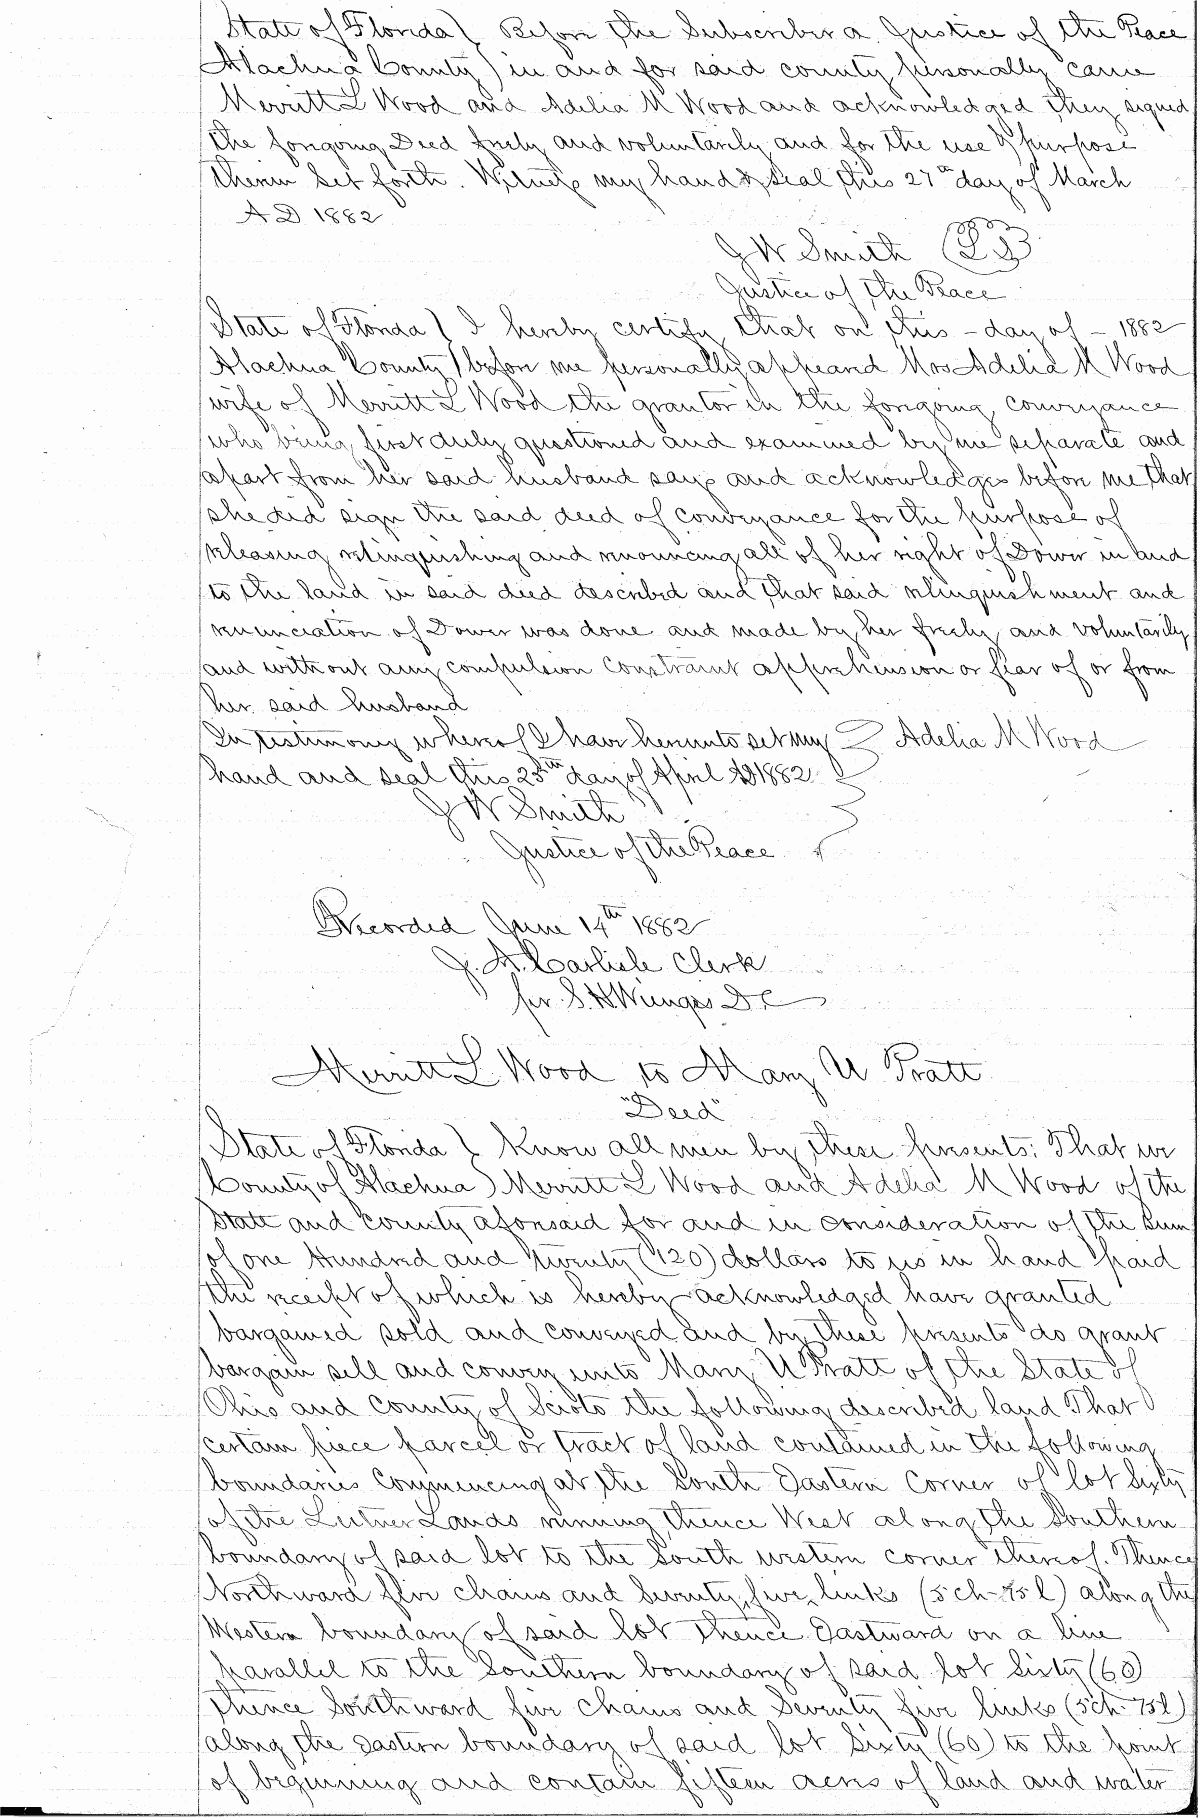 State of Florida } Before the Subscriber a Justice of the Peace
Alachua County } in and for said county personally came
Merritt L Wood and Adelia M Wood and acknowledged they signed
the foregoing Deed freely and voluntarily and for the use & purpose
therein set forth. Witness my hand & seal this 27th day of March
A D 1882
J W Smith (L S)
Justice of the Peace
State of Florida } I hereby certify that on this - day of - 1882
Alachua County } before me personally appeared Mrs Adelia M Wood
wife of Merritt L Wood the grantor in the foregoing conveyance
who being first duly questioned and examined by me separate and
apart from her said husband says and acknowledges before me that
she did sign the said deed of conveyance for the purpose of
releasing relinquishing and renouncing all of her right of Dower in and
to the land in said deed described and that said relinquishment and
renunciation of Dower was done and made by her freely and voluntarily
and without any compulsion constraint apprehension or fear of or from
her said husband
In testimony whereof I have hereunto set my } Adelia M Wood
hand and seal this 25th day of April AD 1882
J W Smith
Justice of the Peace
Recorded June 14th 1882
J. A. Carlisle Clerk
pr. S. H. Wienges D C
Merritt L Wood to Mary U Pratt
"Deed"
State of Florida } Know all men by these presents: That we
County of Alachua } Merritt L Wood and Adelia M Wood of the
State and county aforesaid for and in consideration of the sum
of one Hundred and twenty (120) dollars to us in hand paid
the receipt of which is hereby acknowledged have granted
bargained sold and conveyed and by these presents do grant
bargain sell and convey unto Mary U Pratt of the State of
Ohio and County of Scioto the following described land That
certain piece parcel or tract of land contained in the following
boundaries Commencing at the South Eastern Corner of lot Sixty
of the Lands running thence West along the Southern
boundary of said lot to the South western corner thereof. Thence
Northward five chains and Seventy five links (5 ch-75 l) along the
Western boundary of said lot thence Eastward on a line
parallel to the Southern boundary of said lot Sixty (60)
thence Southward five chains and Seventy five links (5ch-75l)
along the Eastern boundary of said lot Sixty (60) to the point
of beginning and contain fifteen acres of land and water